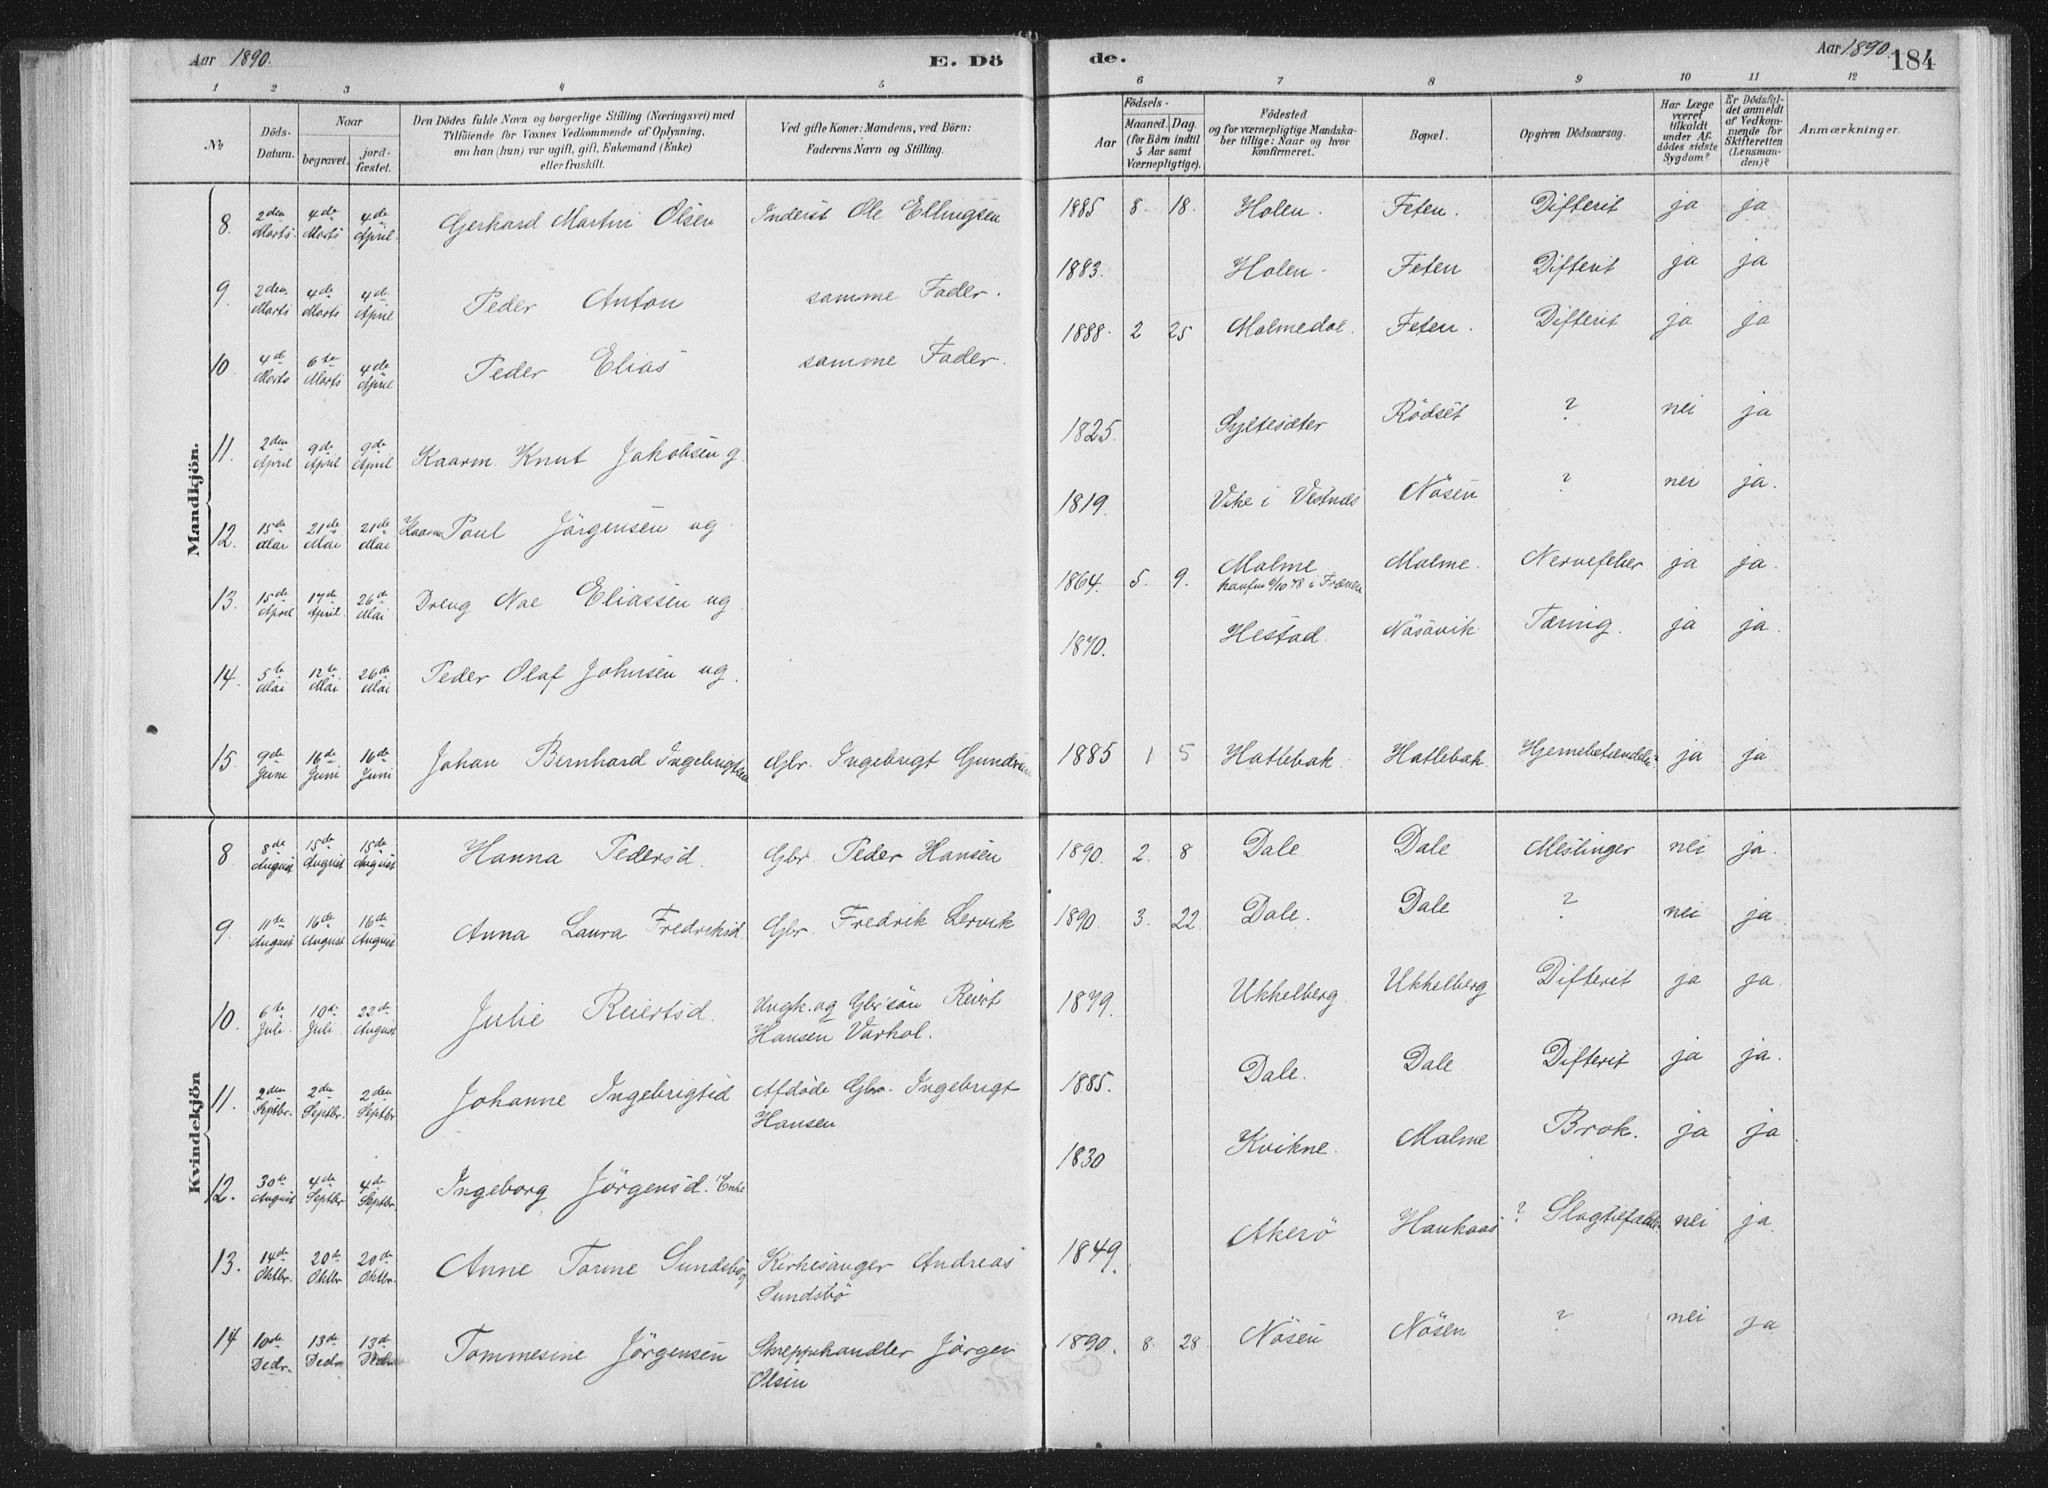 Aar 1890. E. Dö
de. Aar 1890. 184
1 2 3 4 5 6 7 8 9 10 11 12
No
Döds-Datum.
Naar
begravet.
jord-fæstet.
Den Dödes fulde Navn og borgerlige Stilling (Næringsvei) med
Tilföiende for Voxnes Vedkommende af Oplysning,
om han (hun) var ugift, gift, Enkemand (Enke)
eller fraskilt.
Ved gifte Koner: Mandens, ved Börn:
Faderens Navn og Stilling.
Födsels-
Aar
Maaned. Dag.
(for Börn indtil
5 Aar samt
Værnepligtige).
Födested
og for værnepligtige Mandska-
ber tillige: Naar og hvor
konfirmeret.
Bopæl.
Opgiven Dödsaarsag.
Har Læge
været
tilkaldt
under Af-
dödes sidste
Sygdom?
Er Dödsfal-
det anmeldt
af Vedkom-
mende for
Skifteretten
(Lensman-
den)?
Anmærkninger.
Mandkjön.
8. 2den Marts. 4de Marts 4de April. Gerhard Martin Olsen Inderst Ole Ellingsen 1885 8. 18. Holen. Feten. Difterit ja ja
9. 2den Marts 4de Marts 4de April Peder Anton samme Fader. 1883. Holen. Feten Difterit ja ja
10. 4de Marts 6te Marts 4de April Peder Elias samme Fader. 1888. 2 25 Malmedal. Feten. Difterit ja ja
11. 2den April 9de April 9de April Kaarm. Knut Jakobsen g. 1825. Syltesæter Rödset ? nei ja
12. 15de Mai 21de Mai 21de Mai Kaarm Poul Jörgensen ug. 1819. Vike i Vestnes Nösen ? nei ja.
13. 15de April 17de April. 26de Mai Dreng Noe Eliassen ug. 1864. 5. 9. Malme Malme. Nervefeber ja ja.
14. 5te Mai 12te Mai 26de Mai Peder Olaf Johnsen ug. 1870. Hestad. Nösavik Tæring. ja ja.
15. 9de Juni 16de Juni 16de Juni Johan Bernhard Ingebrigtsen Gbr. Ingebrigt Gundersen 1885 1 5 Hatlebak Hatlebak. Hjernebetændelse ja ja
Kvindekjön
8. 8de August 15de August 15de August Hanna Pedersd. Gbr. Peder Hansen 1890. 2. 8 Dale Dale Meslinger nei ja.
9. 11te August 16de August 16de August Anna Laura Fredriksd. Gbr. Fredrik Lervik 1890. 3. 22. Dale. Dale ? nei ja.
10. 6te Juli. 10de Juli. 22de August Julie Reiertsd. Ungk. og Gbrsön Reiert
Hansen Varhol. 1879. Ukkelberg. Ukkelberg Difterit ja ja.
11. 2den Septbr. 2den Septbr. 2den Septbr Johanne Ingebrigtsd Afdöde Gbr. Ingebrigt
Hansen 1885. Dale. Dale Difterit ja ja.
12. 30te August 4de Septbr 4de Septbr. Ingeborg Jörgensd. Enke 1830 Kvikne. Malme Brok. ja ja.
13. 14de Oktbr. 20de Oktbr 20de Oktbr. Anne Tomine Sundsbö Kirkesanger Andreas
Sundsbö 1849. Akerö Haukaas ? Slagtilfælde nei ja.
14 10de Decbr. 13de Decbr 13de Decbr Tommesine Jörgensen Skreppehandler Jörgen
Olsen 1890. 8. 28. Nösen Nösen ? nei ja